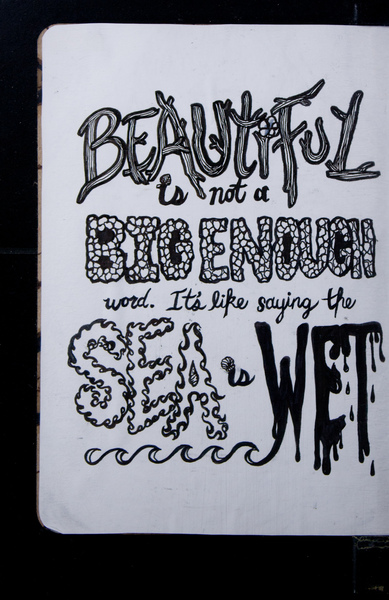 BEAUTiFUL
is not a
BIG ENOUGH
word. It's like saying the
SEA is WET